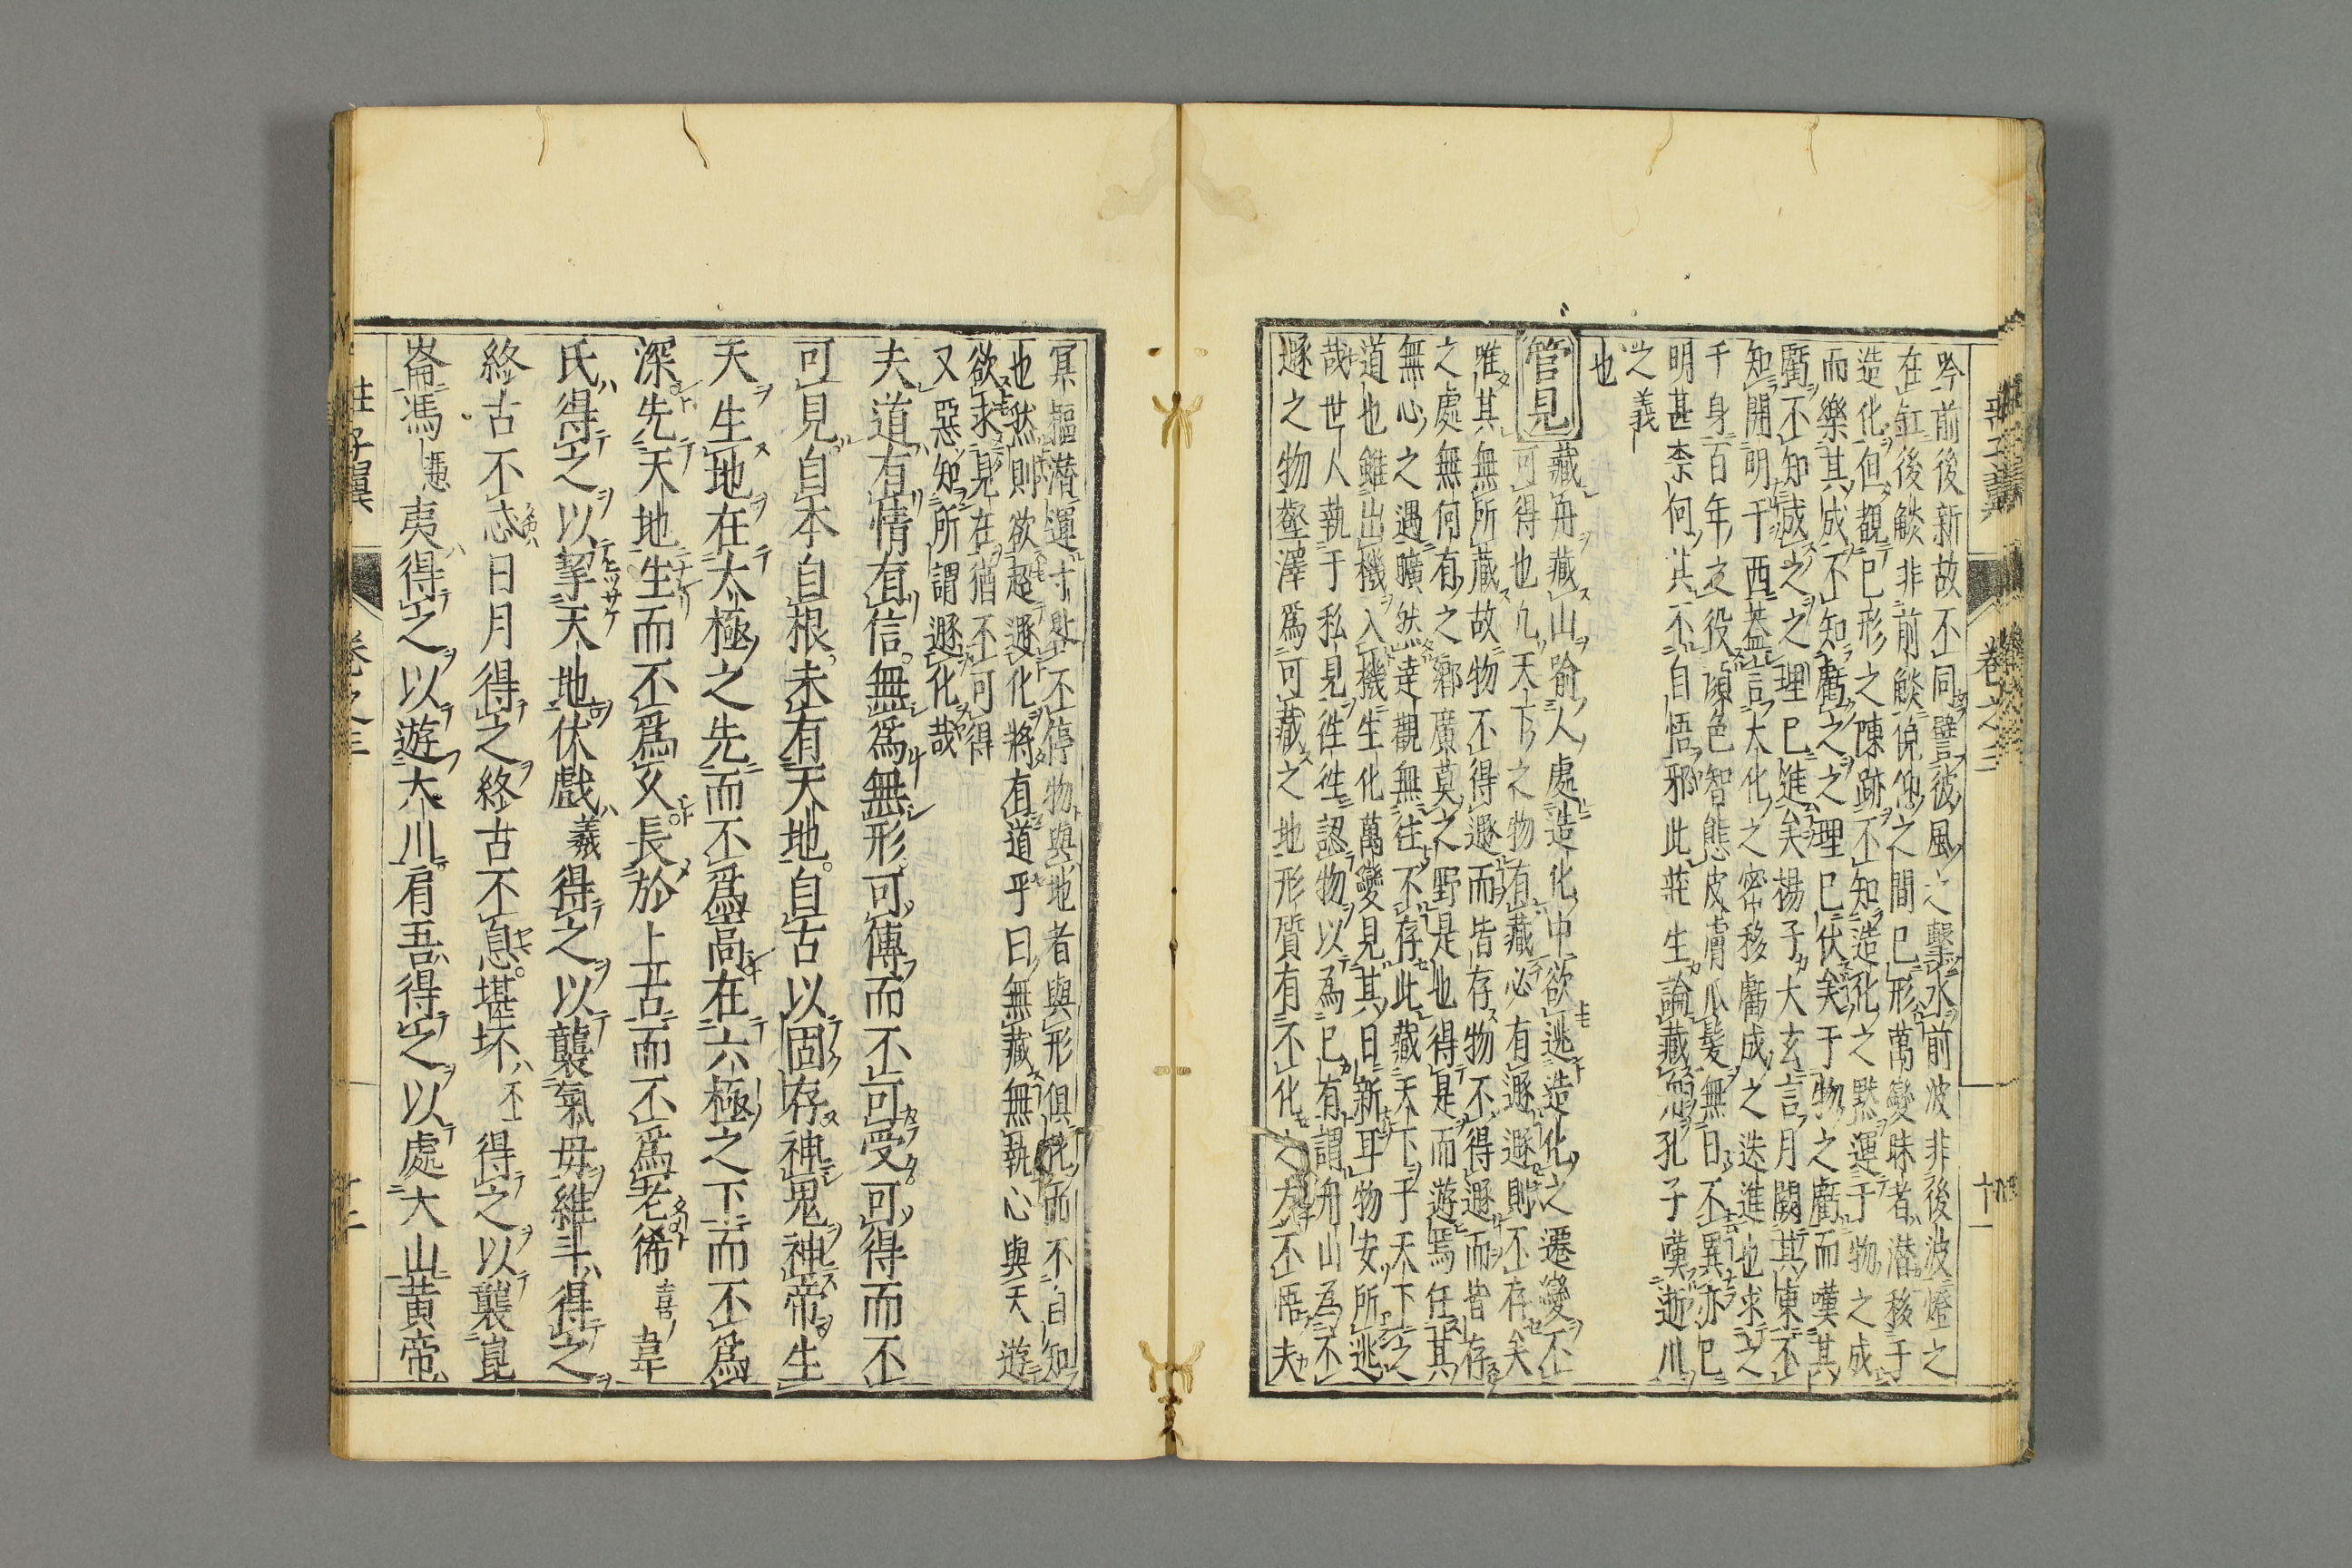 莊子翼 卷之三 十一
吟前後新故不同譬彼風之擊水前波非後波燈之
在缸後燄非前燄俛仰之間已形萬變昧者潜移于
造化但覩已形之陳跡不知造化之黙運于物之成
而樂其成不知虧之之理已伏矣于物之虧而嘆其
虧不知成之之理已進矣揚子大玄言月闕其東不
知開明于西葢言大化之密移虧成之迭進也求之
千身百年之役頌色智態皮膚爪髮無日不異亦已
明甚柰何其不自悟邪此莊生論藏而孔子嘆逝川
之義
也
管見藏舟藏山喻人處造化中欲逃造化之遷變不
可得也凡天下之物有藏必有遯遯則不存矣
唯其無所藏故物不得遯而皆存物不得遯而皆存
之處無何有之鄕廣莫之野是也得是而遊焉任其
無心之遇曠然達觀無徃不存此藏天下于天下之
道也雖出機入機生化萬變見其日新耳物安所逃
哉世人執于私見徃徃認物以為已有謂舟山為不
遯之物壑澤爲可藏之地形質有不化之方不悟夫
冥樞潜運寸晷不停物與地者與形俱化而不自知
也然則欲超遯化將有道乎曰無藏無執心與天遊
欲求見在猶不可得
又惡知所謂遯化哉
夫道有情有信無爲無形可傳而不可受可得而不
可見自本自根未有天地自古以固存神鬼神帝生
天生地在太極之先而不爲高在六極之下而不爲
深先天地生而不爲久長於上古而不爲老狶喜韋
氏得之以挈天地伏戲羲得之以襲氣母維斗得之
終古不忒日月得之終古不息堪坏丕得之以襲崑
崙馮憑夷得之以遊大川肩吾得之以處大山黃帝
莊子翼 卷之三 十二